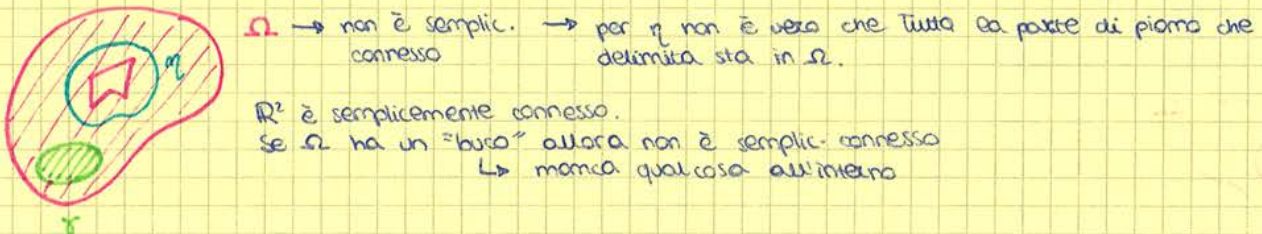 Ω → non è semplic. → per η non è vero che tutta la parte di piano che
connesso delimita sta in Ω.
η
ℝ² è semplicemente connesso.
Se Ω ha un "buco" allora non è semplic. connesso
↳ manca qualcosa all'interno
γ